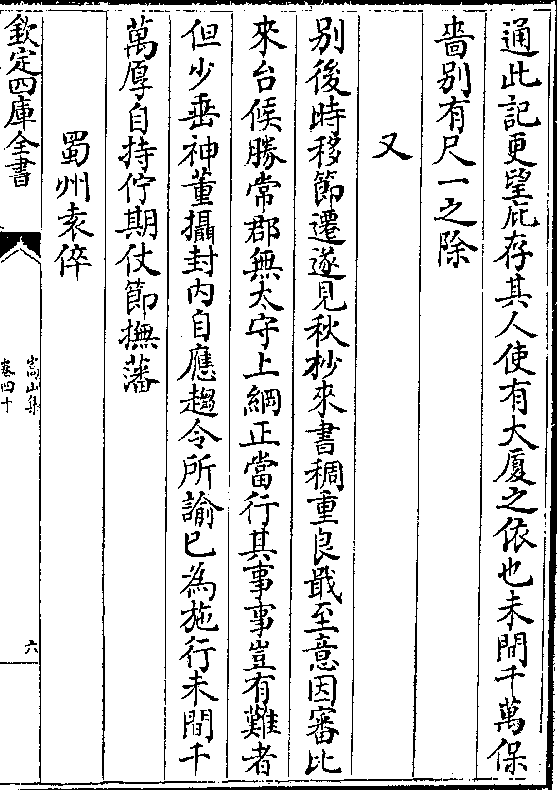 通此記更望庇存其人使有大厦之依也未間千萬保
嗇别有尺一之除
又
别後時移節遷遂見秋杪來書稠重良戢至意因審比
來台候勝常郡無太守上綱正當行其事事豈有難者
但少垂神董攝封内自應趨令所諭已為施行未間千
萬厚自持佇期仗節撫藩
蜀州袁倅
欽定四庫全書
嵩山集
卷四十
六